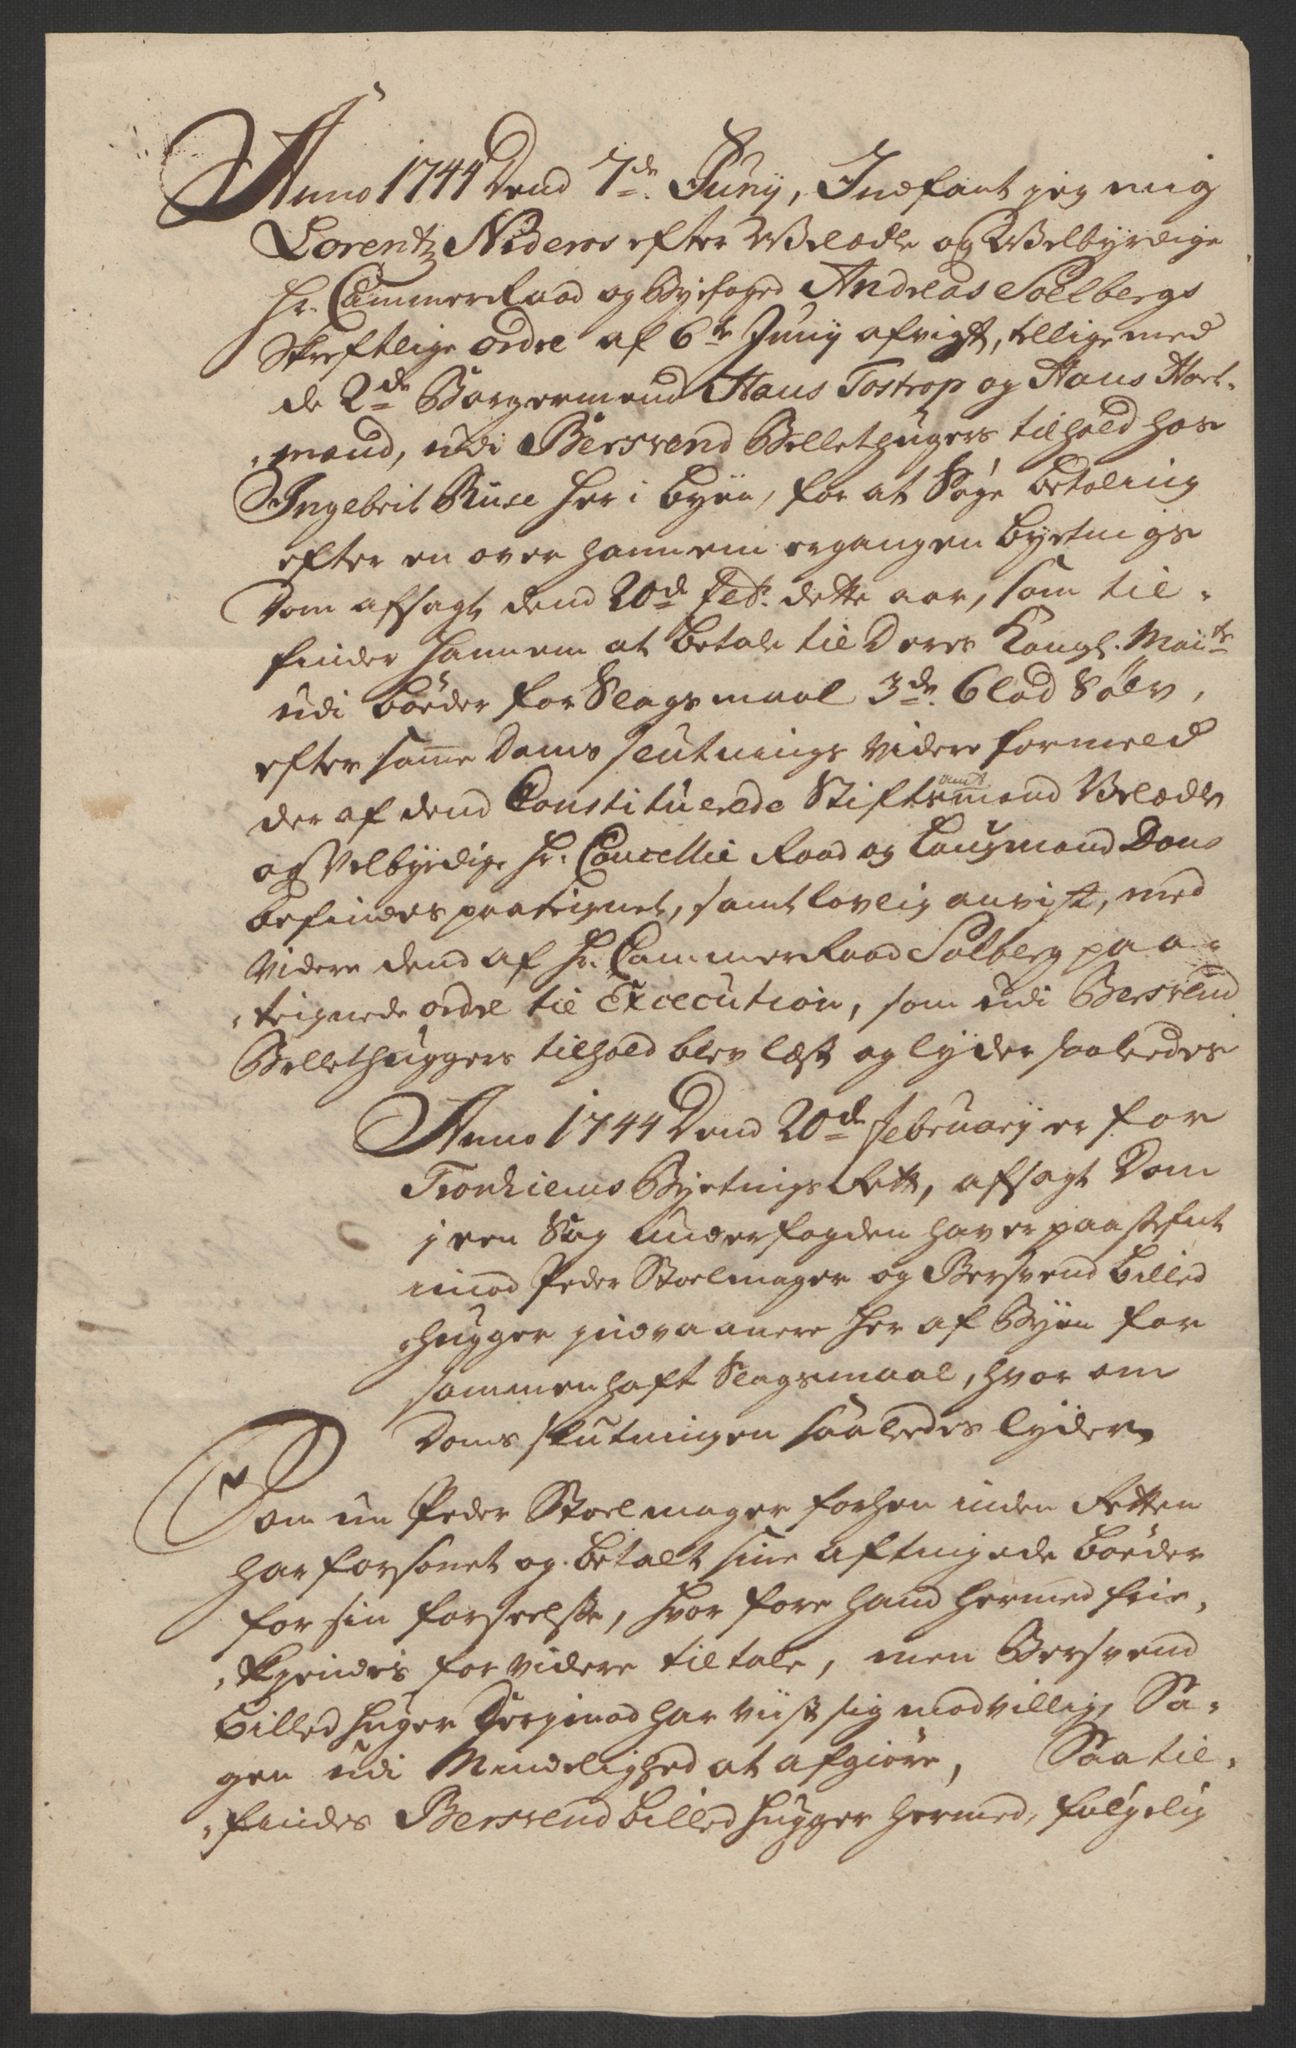 Anno 1744 Dend 7de Juny, Indfant jeg mig
Lorentz Nideros efter Velædle og Velbyrdige
Hr. Cammer Raad og Byefoged Andreas Soelbergs
Skreftlige ordre af 6te Juny afvigt, tillige med
de 2de Borgermend Hans Tostrop og Hans Hart-
-mand, udi Bersvend Billethugers tilhold hos
Ingebrit Ruse her i byen, for at Søge betaling
efter en over hannem ergangen byetings
Dom afsagt dend 20de Feb. dette aar, som til-
finder hannem at betale til Deres Kongl. Maits
udi bøder for Slagsmaal 3de 6 lod Sølv,
efter samme Doms slutnings videre formeld
der af dend Constituerede Stiftsamtmand Velædle
og Velbyrdige Hr. Cancellie Raad og Laugmand Dons
befindes paateignet, samt lovlig anvist, med
videre dend af Hr. Cammer Raad Solberg paa-
-teignede ordre til Excecution, som udi Bersvend
Billethuggers tilhold blev læst og lyder saaledes
Anno 1744 Dend 20de February er for
Tronhiems Byetings Rett, afsagt Dom
j een Sag underfogden haver paastefnt
imod Peder Stoelmager og Bersvend billed
-hugger indvaanere her af Byen for
sammenhaft Slagsmaal, hvor om
Doms slutningen saaledes lyder
Som nu Peder Stoelmager forhen inden Retten
har forsonet og betalt sine aftingede bøder
for sin forseelse, hvor fore hand hermed frie-
-kjendes for videre tiltale, men Bersvend
billedhuger derimod har viist sig modvillig, Sa-
gen udi Mindelighed at afgiøre, Saa til-
-findes Bersvend billedhugger hermed, følgelig